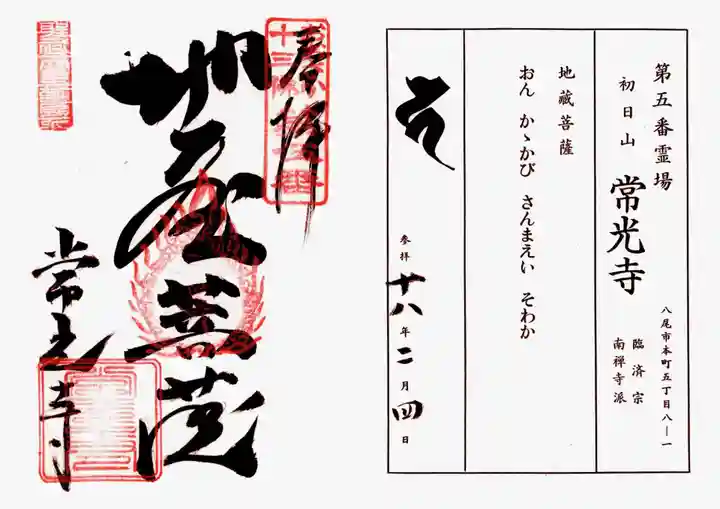 第五番霊場
初日山 常光寺
八尾市本町五丁目八―一
臨済宗
南禅寺派
地蔵菩薩
おん かゝかび さんまえい そわか
参拝 十八年二月四日
奉拝
地蔵菩薩
常光寺